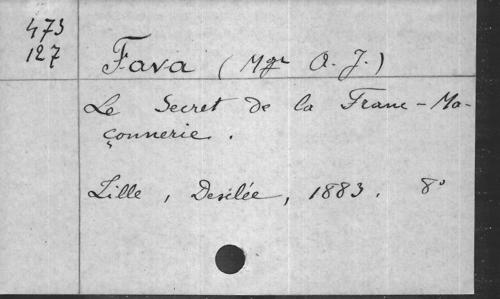 473
127
Fava (Mgr A. J.)
Le Secret de la Franc-Ma-
çonnerie.
Lille, Desclée, 1883. 8°